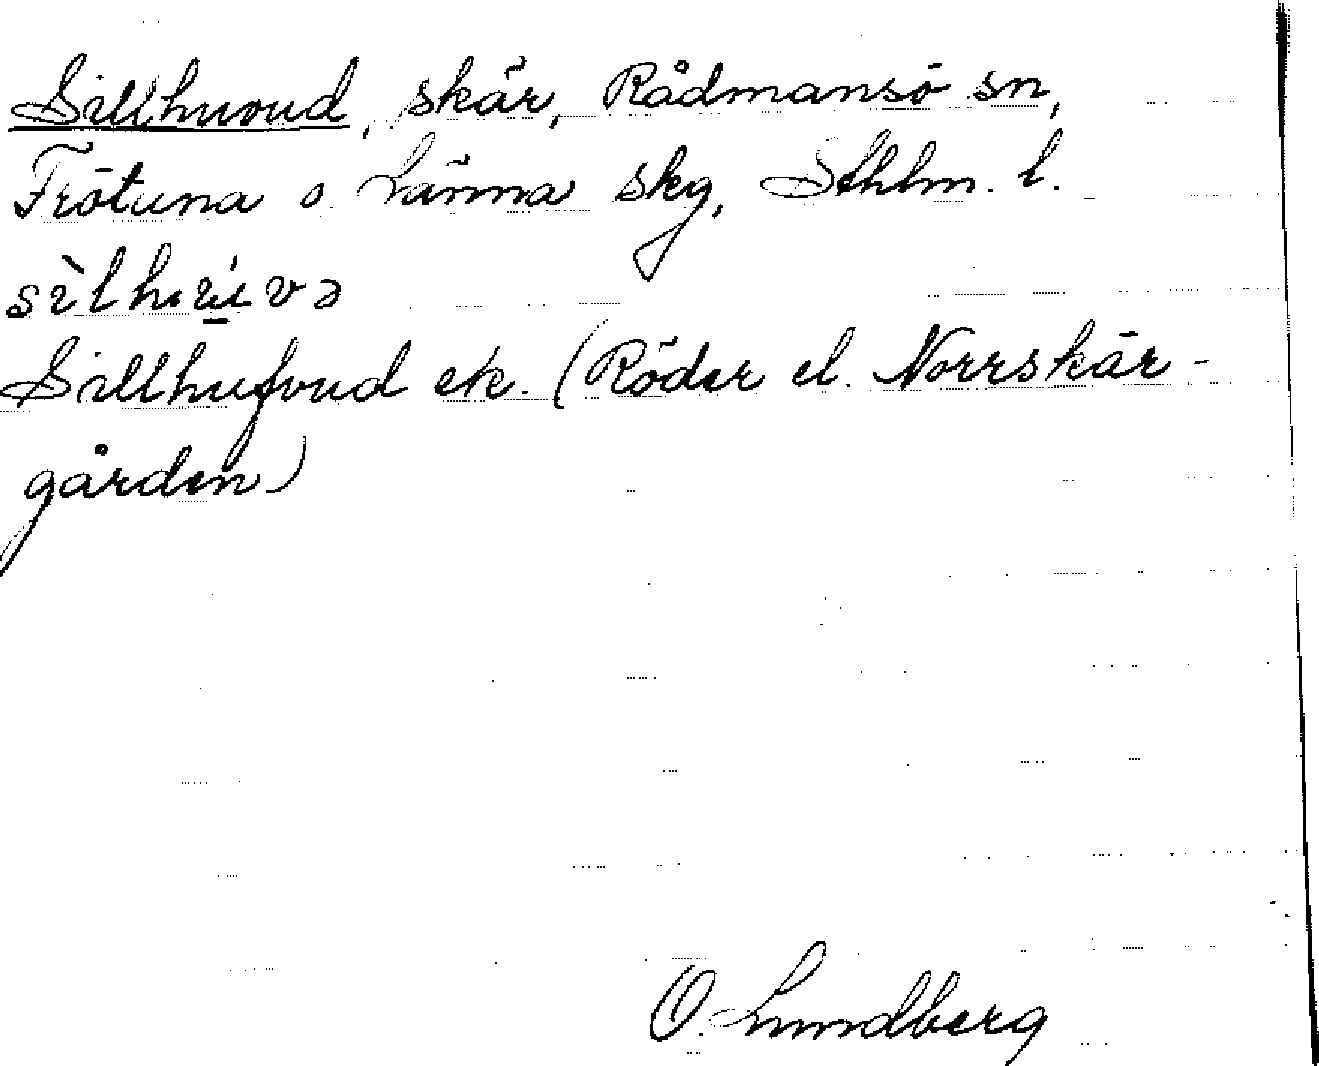 Sillhuvud, skär, Rådmansö sn,
Frötuna o. Länna skg, Sthlm. l.
Sillhufvud ek. (Röder el. Norrskär-
gården)
O. Lundberg